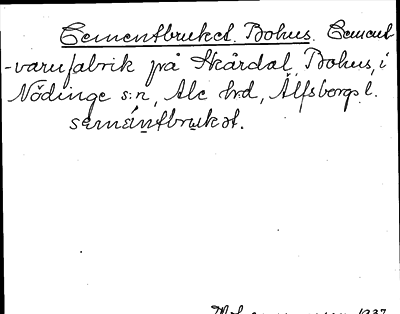 Cementbruket. Bohus. Cement
-varufabrik på Skårdal, Bohus, i
Nödinge s:n, Ale hrd, Älfsborgs l.
semäntbrukət.
1937